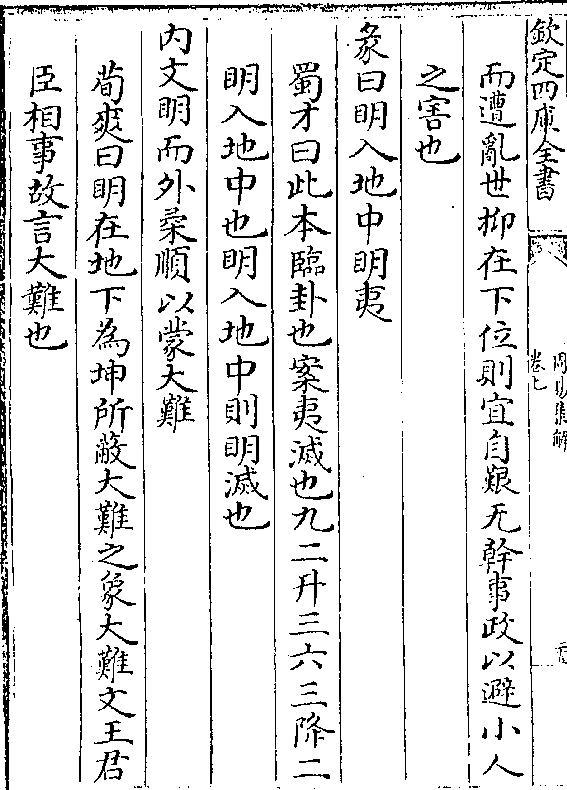 欽定四庫全書
周易集解
卷七
而遭亂世抑在下位則宜自艱无幹事政以避小人
之害也
彖曰明入地中明夷
蜀才曰此本臨卦也案夷滅也九二升三六三降二
明入地中也明入地中則明滅也
内文明而外柔順以蒙大難
荀爽曰明在地下為坤所蔽大難之象大難文王君
臣相事故言大難也